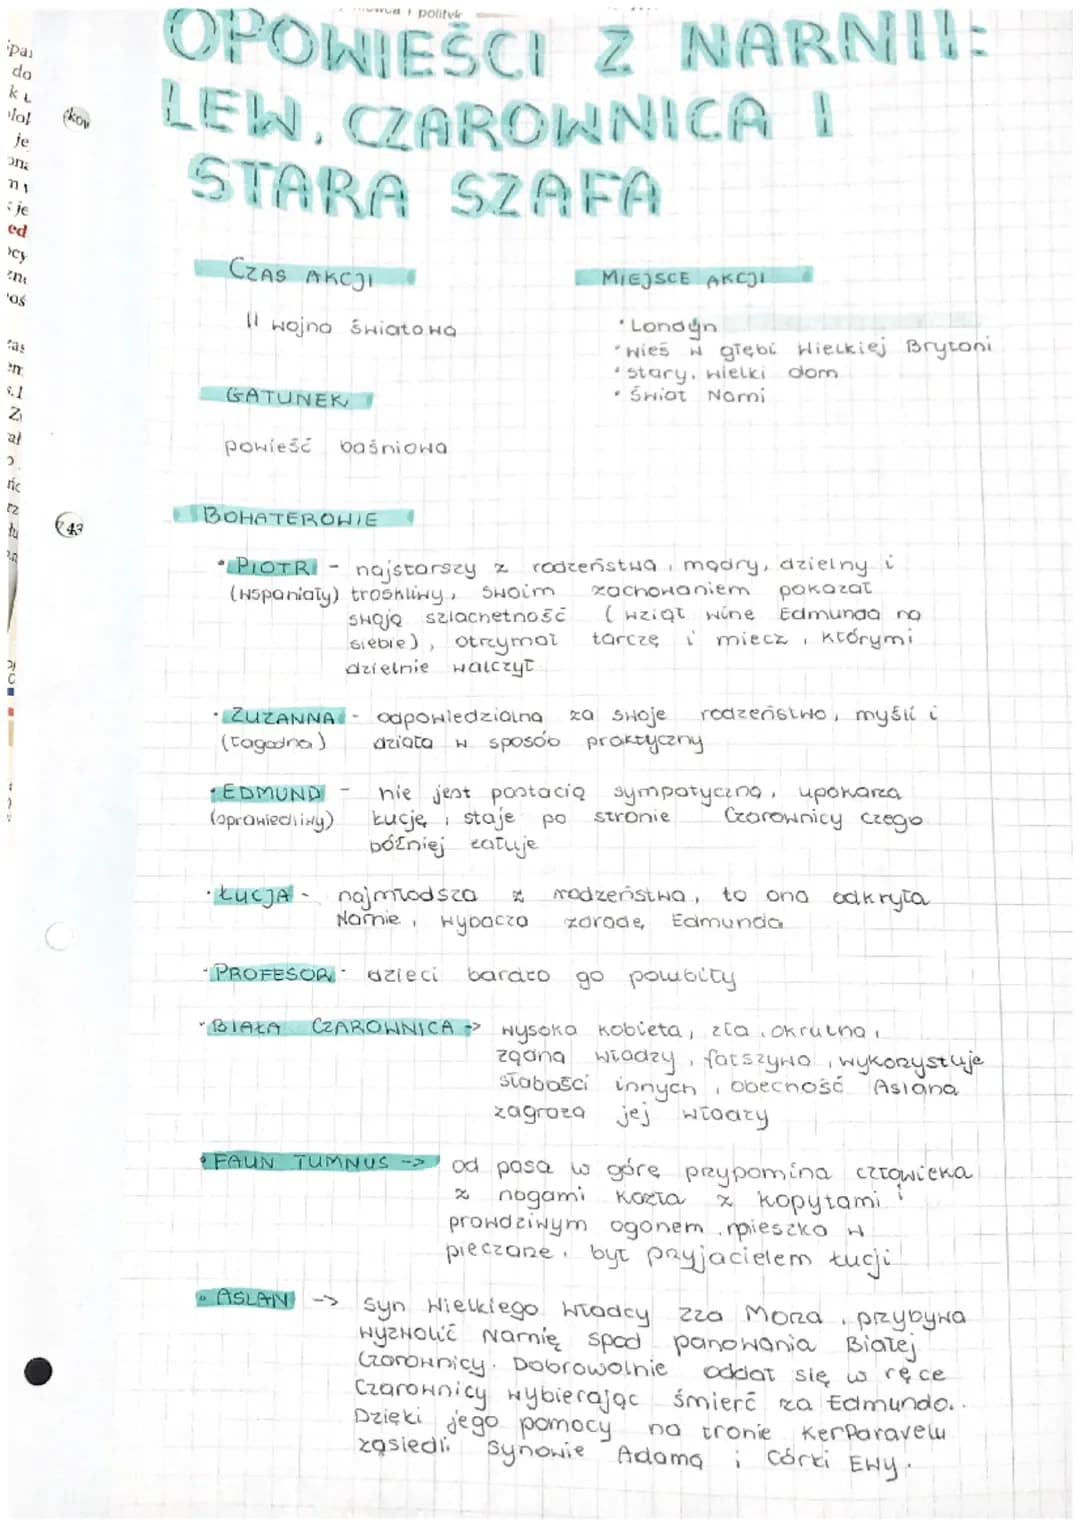 OPOWIEŚCI Z NARNII:
LEW, CZAROWNICA I
STARA SZAFA
CZAS AKCJI
II wojna światowa
MIEJSCE AKCJI
• Londyn
• wieś w głębi Wielkiej Brytani
• stary, wielki dom
• Świat Narni
GATUNEK
powieść baśniowa
BOHATEROWIE
• PIOTR - najstarszy z rodzeństwa, mądry, dzielny i
(wspaniały) troskliwy, swoim zachowaniem pokazał
swoją szlachetność (wziął wine Edmunda na
siebie), otrzymał tarczę i miecz, którymi
dzielnie walczył
• ZUZANNA - odpowiedzialna za swoje rodzeństwo, myśli i
(łagodna) działa w sposób praktyczny
• EDMUND - nie jest postacią sympatyczną, upokarza
(sprawiedliwy) Łucję, staje po stronie Czarownicy czego
później żałuje
• ŁUCJA - najmłodsza z rodzeństwa, to ona odkryła
Narnie, wybacza zdradę Edmunda
• PROFESOR - dzieci bardzo go polubiły
• BIAŁA CZAROWNICA -> wysoka kobieta, zła, okrutna,
żądna władzy, fałszywa, wykorzystuje
słabości innych, obecność Aslana
zagraża jej władzy
• FAUN TUMNUS -> od pasa w górę przypomina człowieka
z nogami kozła z kopytami i
prawdziwym ogonem, mieszka w
pieczarze, był przyjacielem Łucji
• ASLAN -> syn Wielkiego Władcy zza Morza, przybywa
wyzwolić Narnię spod panowania Białej
Czarownicy. Dobrowolnie oddał się w ręce
Czarownicy wybierając śmierć za Edmunda.
Dzięki jego pomocy na tronie KerParavelu
zasiedli Synowie Adama i Córki Ewy.